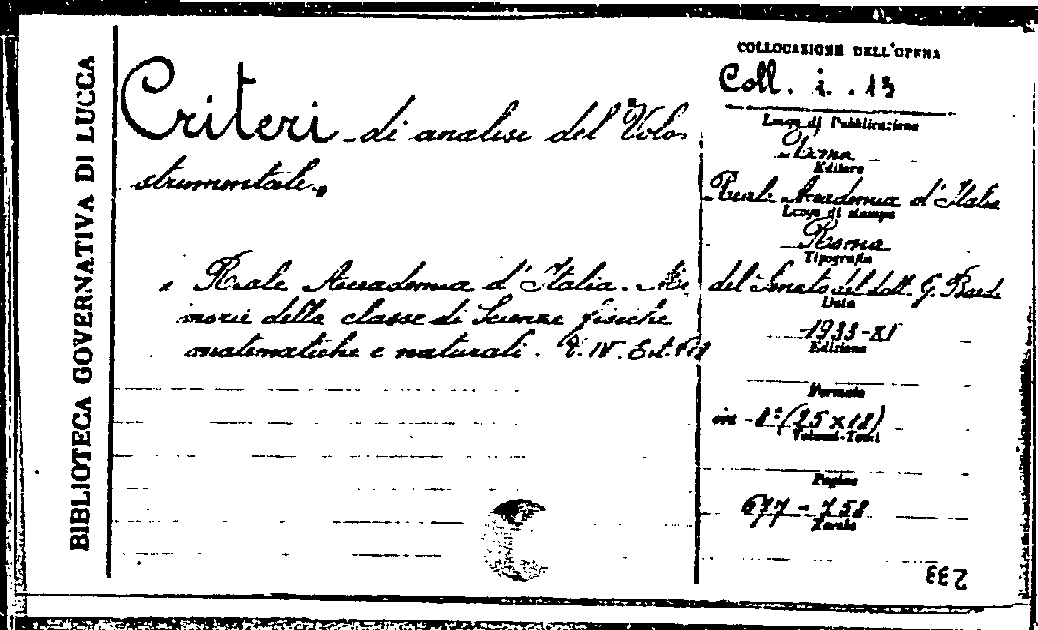 BIBLIOTECA GOVERNATIVA DI LUCCA
Criteri di analisi del Volo
strumentale.
Reale Accademia d'Italia. Me
morie della classe di Scienze fisiche
matematiche e naturali. V. IV. Est.
COLLOCAZIONE DELL'OPERA
Coll. i. 13
Luogo di Pubblicazione
Roma
Editore
Reale Accademia d'Italia
Luogo di stampa
Roma
Tipografia
del Senato del dott. G. Bardi
Data
1933-XI
Edizione
Formato
in-8° (25x18)
Volumi-Tomi
Pagine
677-758
Tavole
233